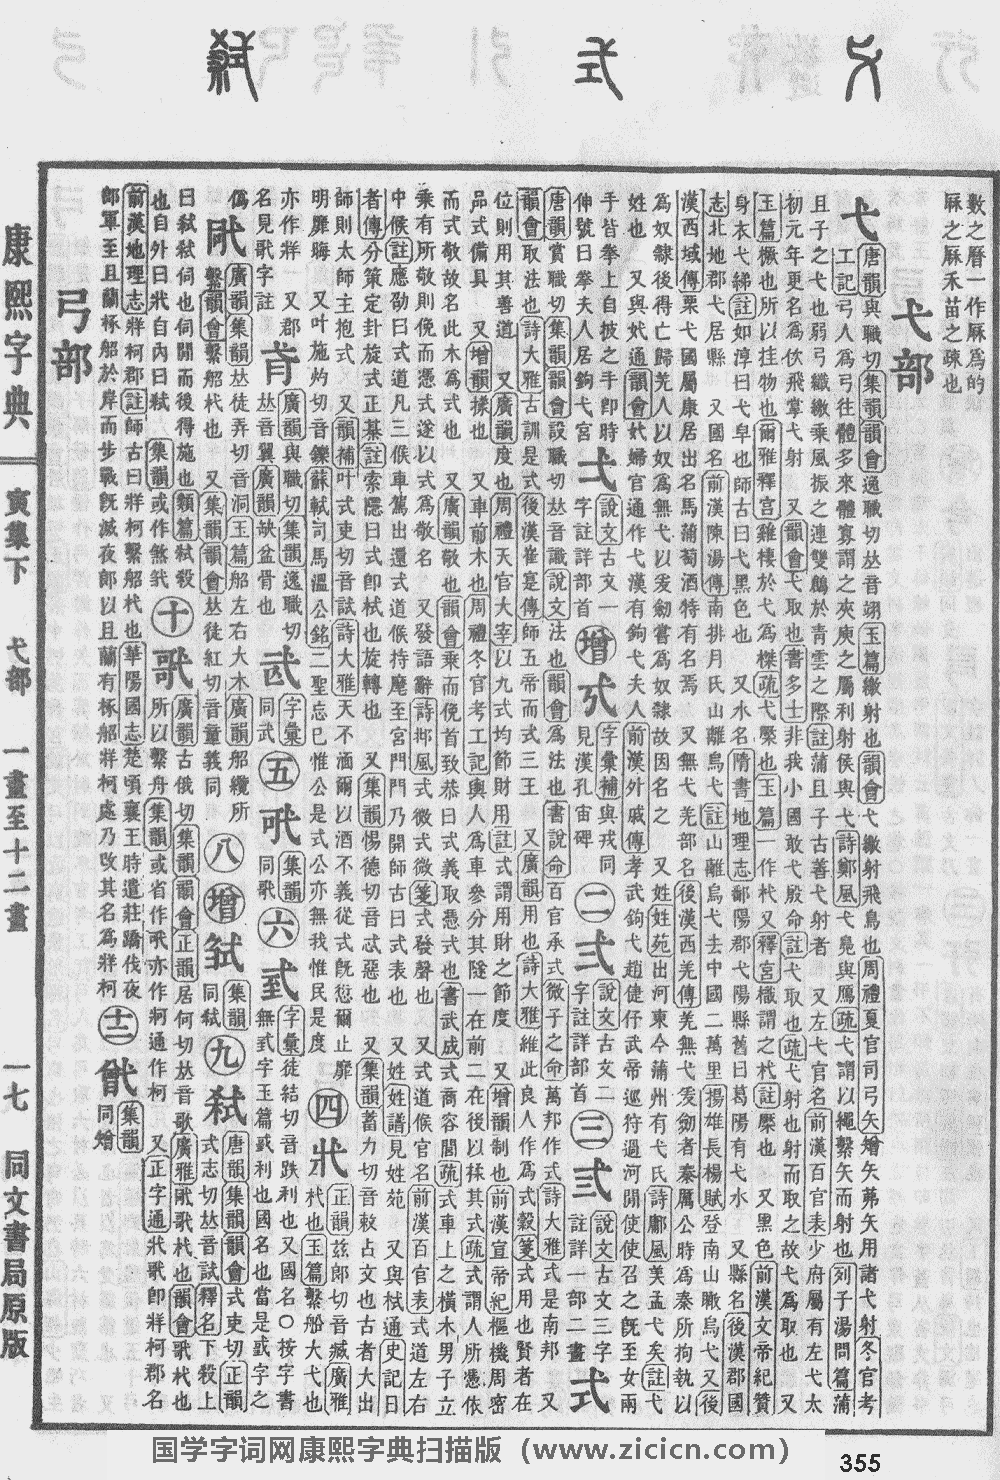 弋
式
弒
數之曆一作厤爲的
厤之厤禾苗之疎也
弋部
弋
唐韻與職切集韻韻會逸職切𠀤音翊玉篇繳射也韻會弋繳射飛鳥也周禮夏官司弓矢矰矢茀矢用諸弋射冬官考
工記弓人爲弓往體多來體寡謂之夾庾之屬利射侯與弋詩鄭風弋鳧與鴈疏弋謂以繩繫矢而射也列子湯問篇蒲
且子之弋也弱弓纖繳乘風振之連雙鶬於青雲之際註蒲且子古善弋射者 又左弋官名前漢百官表少府屬有左弋太
初元年更名爲佽飛掌弋射 又韻會弋取也書多士非我小國敢弋殷命註弋取也疏弋射也射而取之故弋爲取也 又
玉篇橛也所以挂物也爾雅釋宮雞棲於弋爲榤疏弋橜也玉篇一作杙又釋宮樴謂之杙註橜也 又黑色前漢文帝紀贊
身衣弋綈註如淳曰弋皁也師古曰弋黑色也 又水名隋書地理志鄱陽郡弋陽縣舊曰葛陽有弋水 又縣名後漢郡國
志北地郡弋居縣 又國名前漢陳湯傳南排月氏山離烏弋註山離烏弋去中國二萬里揚雄長楊賦登南山瞰烏弋又後
漢西域傳栗弋國屬康居出名馬蒲萄酒特有名焉 又無弋羌部名後漢西羌傳羌無弋爰劒者秦厲公時爲秦所拘執以
爲奴隸後得亡歸羌人以奴爲無弋以爰劒嘗爲奴隸故因名之 又姓姓苑出河東今蒲州有弋氏詩鄘風美孟弋矣註弋
姓也 又與妷通韻會妷婦官通作弋漢有鉤弋夫人前漢外戚傳孝武鉤弋趙倢伃武帝巡狩過河閒使使召之旣至女兩
手皆拳上自披之手卽時
伸號曰拳夫人居鉤弋宮
弌
說文古文一
字註詳部首
增
字彙補與戎同
見漢孔宙碑
二
弍
說文古文二
字註詳部首
三
弎
說文古文三字
註詳一部二畫
式
唐韻賞職切集韻韻會設職切𠀤音識說文法也韻會爲法也書說命百官承式微子之命萬邦作式詩大雅式是南邦 又
韻會取法也詩大雅古訓是式後漢崔寔傳師五帝而式三王 又廣韻用也詩大雅維此良人作爲式穀箋式用也賢者在
位則用其善道 又廣韻度也周禮天官大宰以九式均節財用註式謂用財之節度 又增韻制也前漢宣帝紀樞機周密
品式備具 又增韻揉也 又車前木也周禮冬官考工記輿人爲車參分其隧一在前二在後以揉其式疏式謂人所憑依
而式敬故名此木爲式也 又廣韻敬也韻會乘而俛首致恭曰式義取憑式也書武成式商容閭疏式車上之橫木男子立
乘有所敬則俛而憑式遂以式爲敬名 又發語辭詩邶風式微式微箋式發聲也 又式道候官名前漢百官表式道左右
中候註應劭曰式道凡三候車駕出還式道候持麾至宮門門乃開師古曰式表也 又姓姓譜見姓苑 又與栻通史記日
者傳分策定卦旋式正棊註索隱曰式卽栻也旋轉也 又集韻惕德切音忒惡也 又集韻蓄力切音敕占文也古者大出
師則太師主抱式 又韻補叶式吏切音試詩大雅天不湎爾以酒不義從式旣愆爾止靡
明靡晦 又叶施灼切音鑠蘇軾司馬溫公銘二聖忘已惟公是式公亦無我惟民是度
四
正韻茲郎切音臧廣雅
杙也玉篇繫船大弋也
亦作牂 又郡
名見牁字註
廣韻與職切集韻逸職切
𠀤音翼廣韻缺盆骨也
字彙
同武
五
集韻
同歌
六
字彙徒結切音跌利也又國名○按字書
無字玉篇或利也國名也當是或字之
譌
廣韻集韻𠀤徒弄切音洞玉篇船左右大木廣韻船纜所
繫韻會繫船杙也 又集韻韻會𠀤徒紅切音童義同
八
增
集韻
同弒
九
弒
唐韻集韻韻會式吏切正韻
式志切𠀤音試釋名下殺上
曰弒弒伺也伺閒而後得施也類篇弒殺
也自外曰戕自內曰弒 集韻或作煞
十
廣韻古俄切集韻韻會正韻居何切𠀤音歌廣雅杙也韻會杙也
所以繫舟集韻或省作亦作牁通作柯 又正字通卽牂柯郡名
前漢地理志牂柯郡註師古曰牂柯繫船杙也華陽國志楚頃襄王時遣莊蹻伐夜
郎軍至且蘭椓船於岸而步戰旣滅夜郎以且蘭有椓船牂柯處乃改其名爲牂柯
十二
集韻
同矰
弓部
康熙字典
寅集下
弋部
一畫至十二畫
一七
同文書局原版
国学字词网康熙字典扫描版（www.zicicn.com）
355